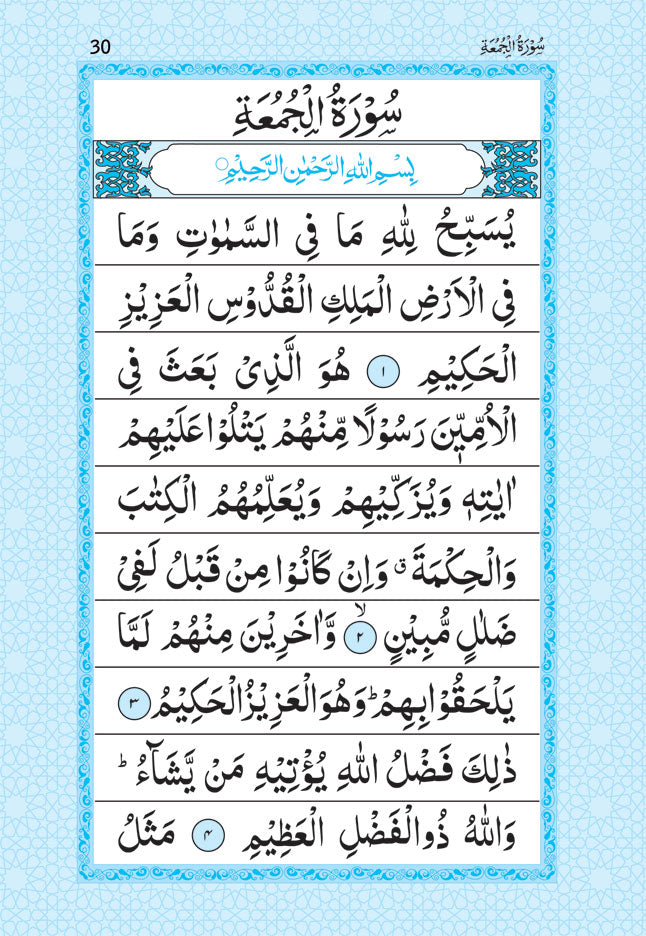 30
سُوْرَةُ الْجُمُعَةِ
سُوْرَةُ الْجُمُعَةِ
بِسْمِ اللهِ الرَّحْمٰنِ الرَّحِيْمِ○
يُسَبِّحُ لِلّٰهِ مَا فِى السَّمٰوٰتِ وَمَا
فِى الْاَرْضِ الْمَلِكِ الْقُدُّوْسِ الْعَزِيْزِ
الْحَكِيْمِ ۱ هُوَ الَّذِىْ بَعَثَ فِى
الْاُمِّيّٖنَ رَسُوْلًا مِّنْهُمْ يَتْلُوْا عَلَيْهِمْ
اٰيٰتِهٖ وَيُزَكِّيْهِمْ وَيُعَلِّمُهُمُ الْكِتٰبَ
وَالْحِكْمَةَ ق وَاِنْ كَانُوْا مِنْ قَبْلُ لَفِىْ
ضَلٰلٍ مُّبِيْنٍ ۙ ۲ وَّاٰخَرِيْنَ مِنْهُمْ لَمَّا
يَلْحَقُوْا بِهِمْ ؕ وَهُوَ الْعَزِيْزُ الْحَكِيْمُ ۳
ذٰلِكَ فَضْلُ اللهِ يُؤْتِيْهِ مَنْ يَّشَآءُ ؕ
وَاللهُ ذُوالْفَضْلِ الْعَظِيْمِ ۴ مَثَلُ